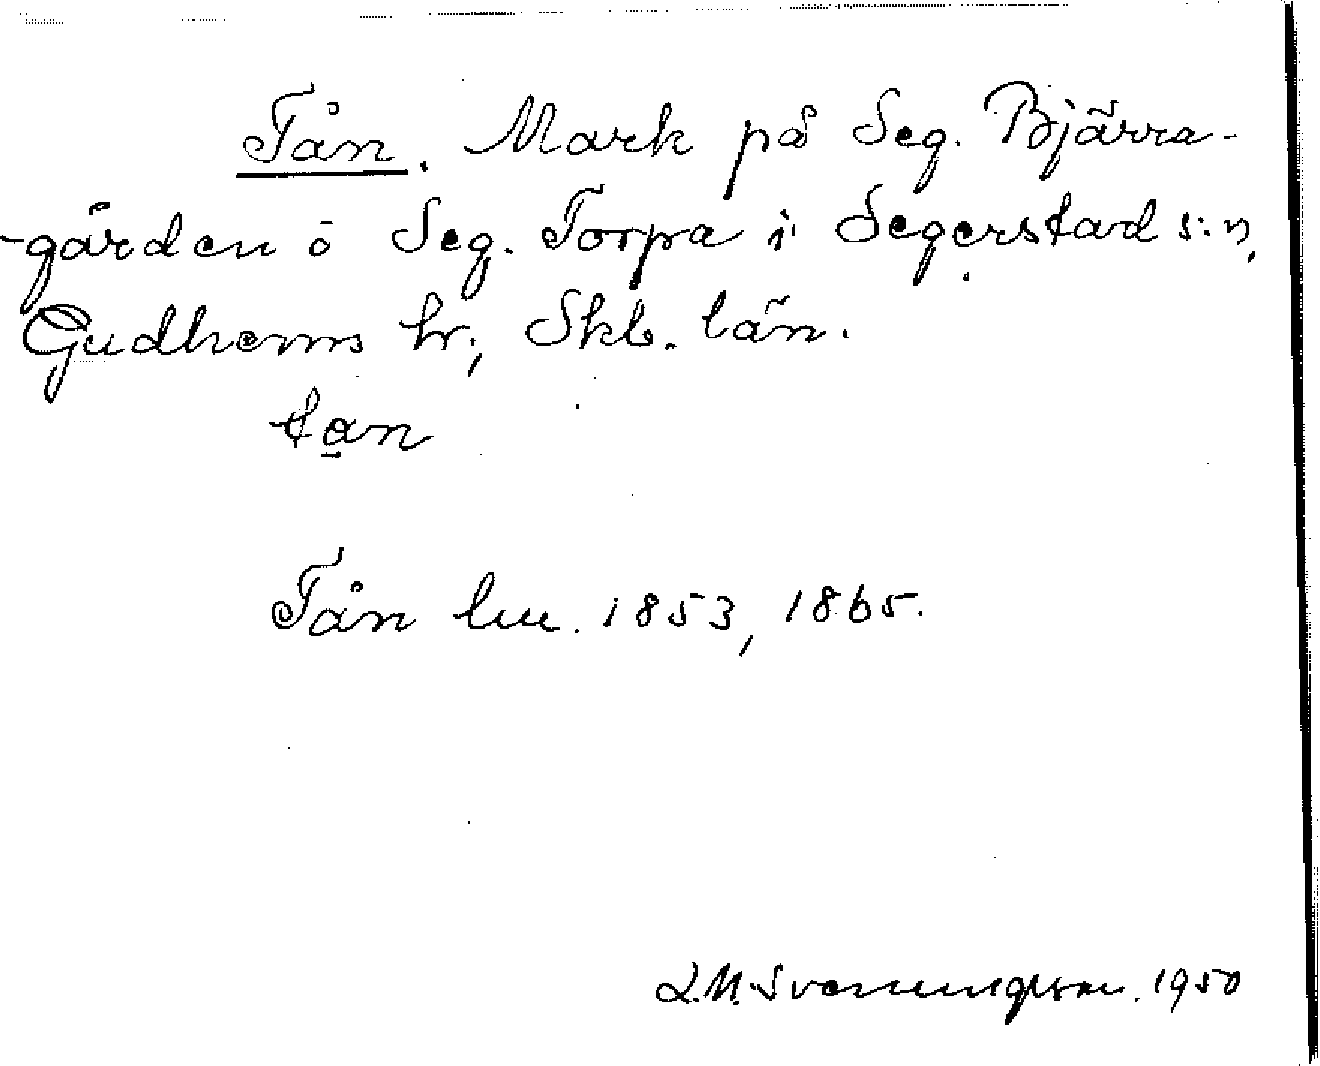 Tån. Mark på Seg. Bjärra-
-gården o Seg. Torpa i Segerstad s:n,
Gudhems hr, Skb. län.
tan
Tån lm. 1853, 1865.
L.M. Svenungsson. 1950